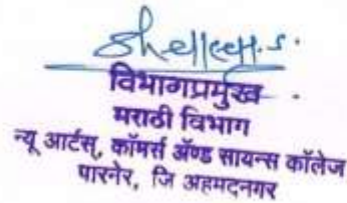 विभागप्रमुख
मराठी विभाग
न्यू आर्टस्, कॉमर्स ॲण्ड सायन्स कॉलेज
पारनेर, जि अहमदनगर